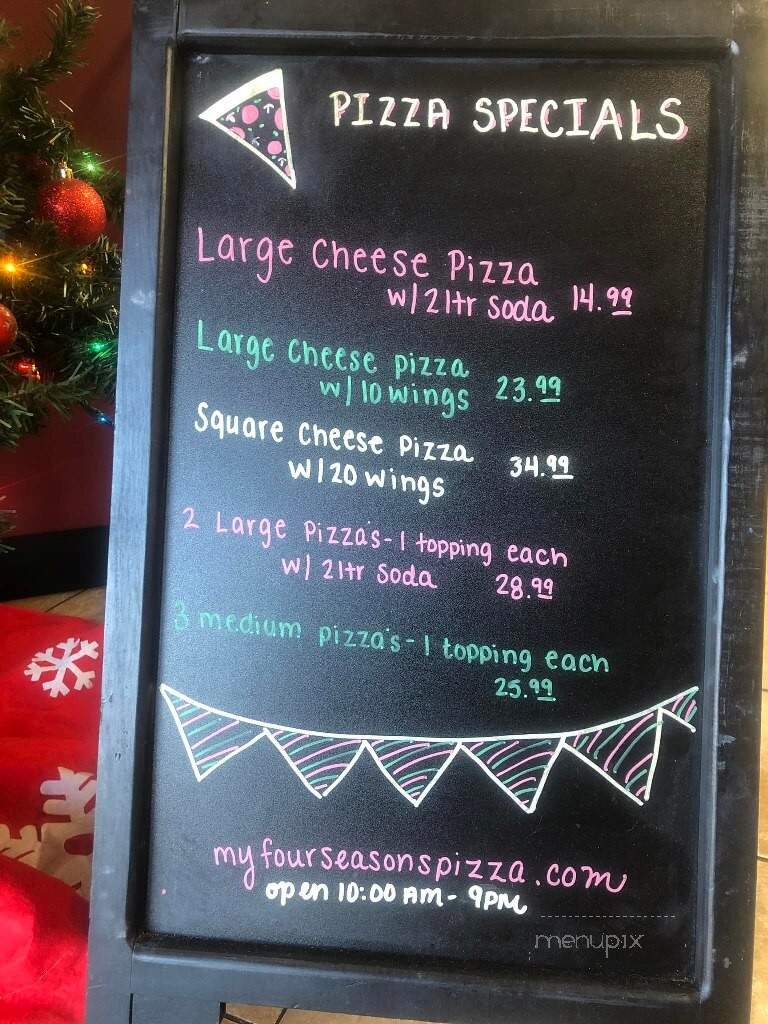 PIZZA SPECIALS
Large Cheese Pizza
w/ 2 ltr soda 14.99
Large Cheese pizza
w/ 10 wings 23.99
Square Cheese Pizza
w/ 20 wings 34.99
2 Large Pizza's - 1 topping each
w/ 2 ltr Soda 28.99
3 medium pizza's - 1 topping each
25.99
myfourseasonspizza.com
open 10:00 AM - 9PM
menupix